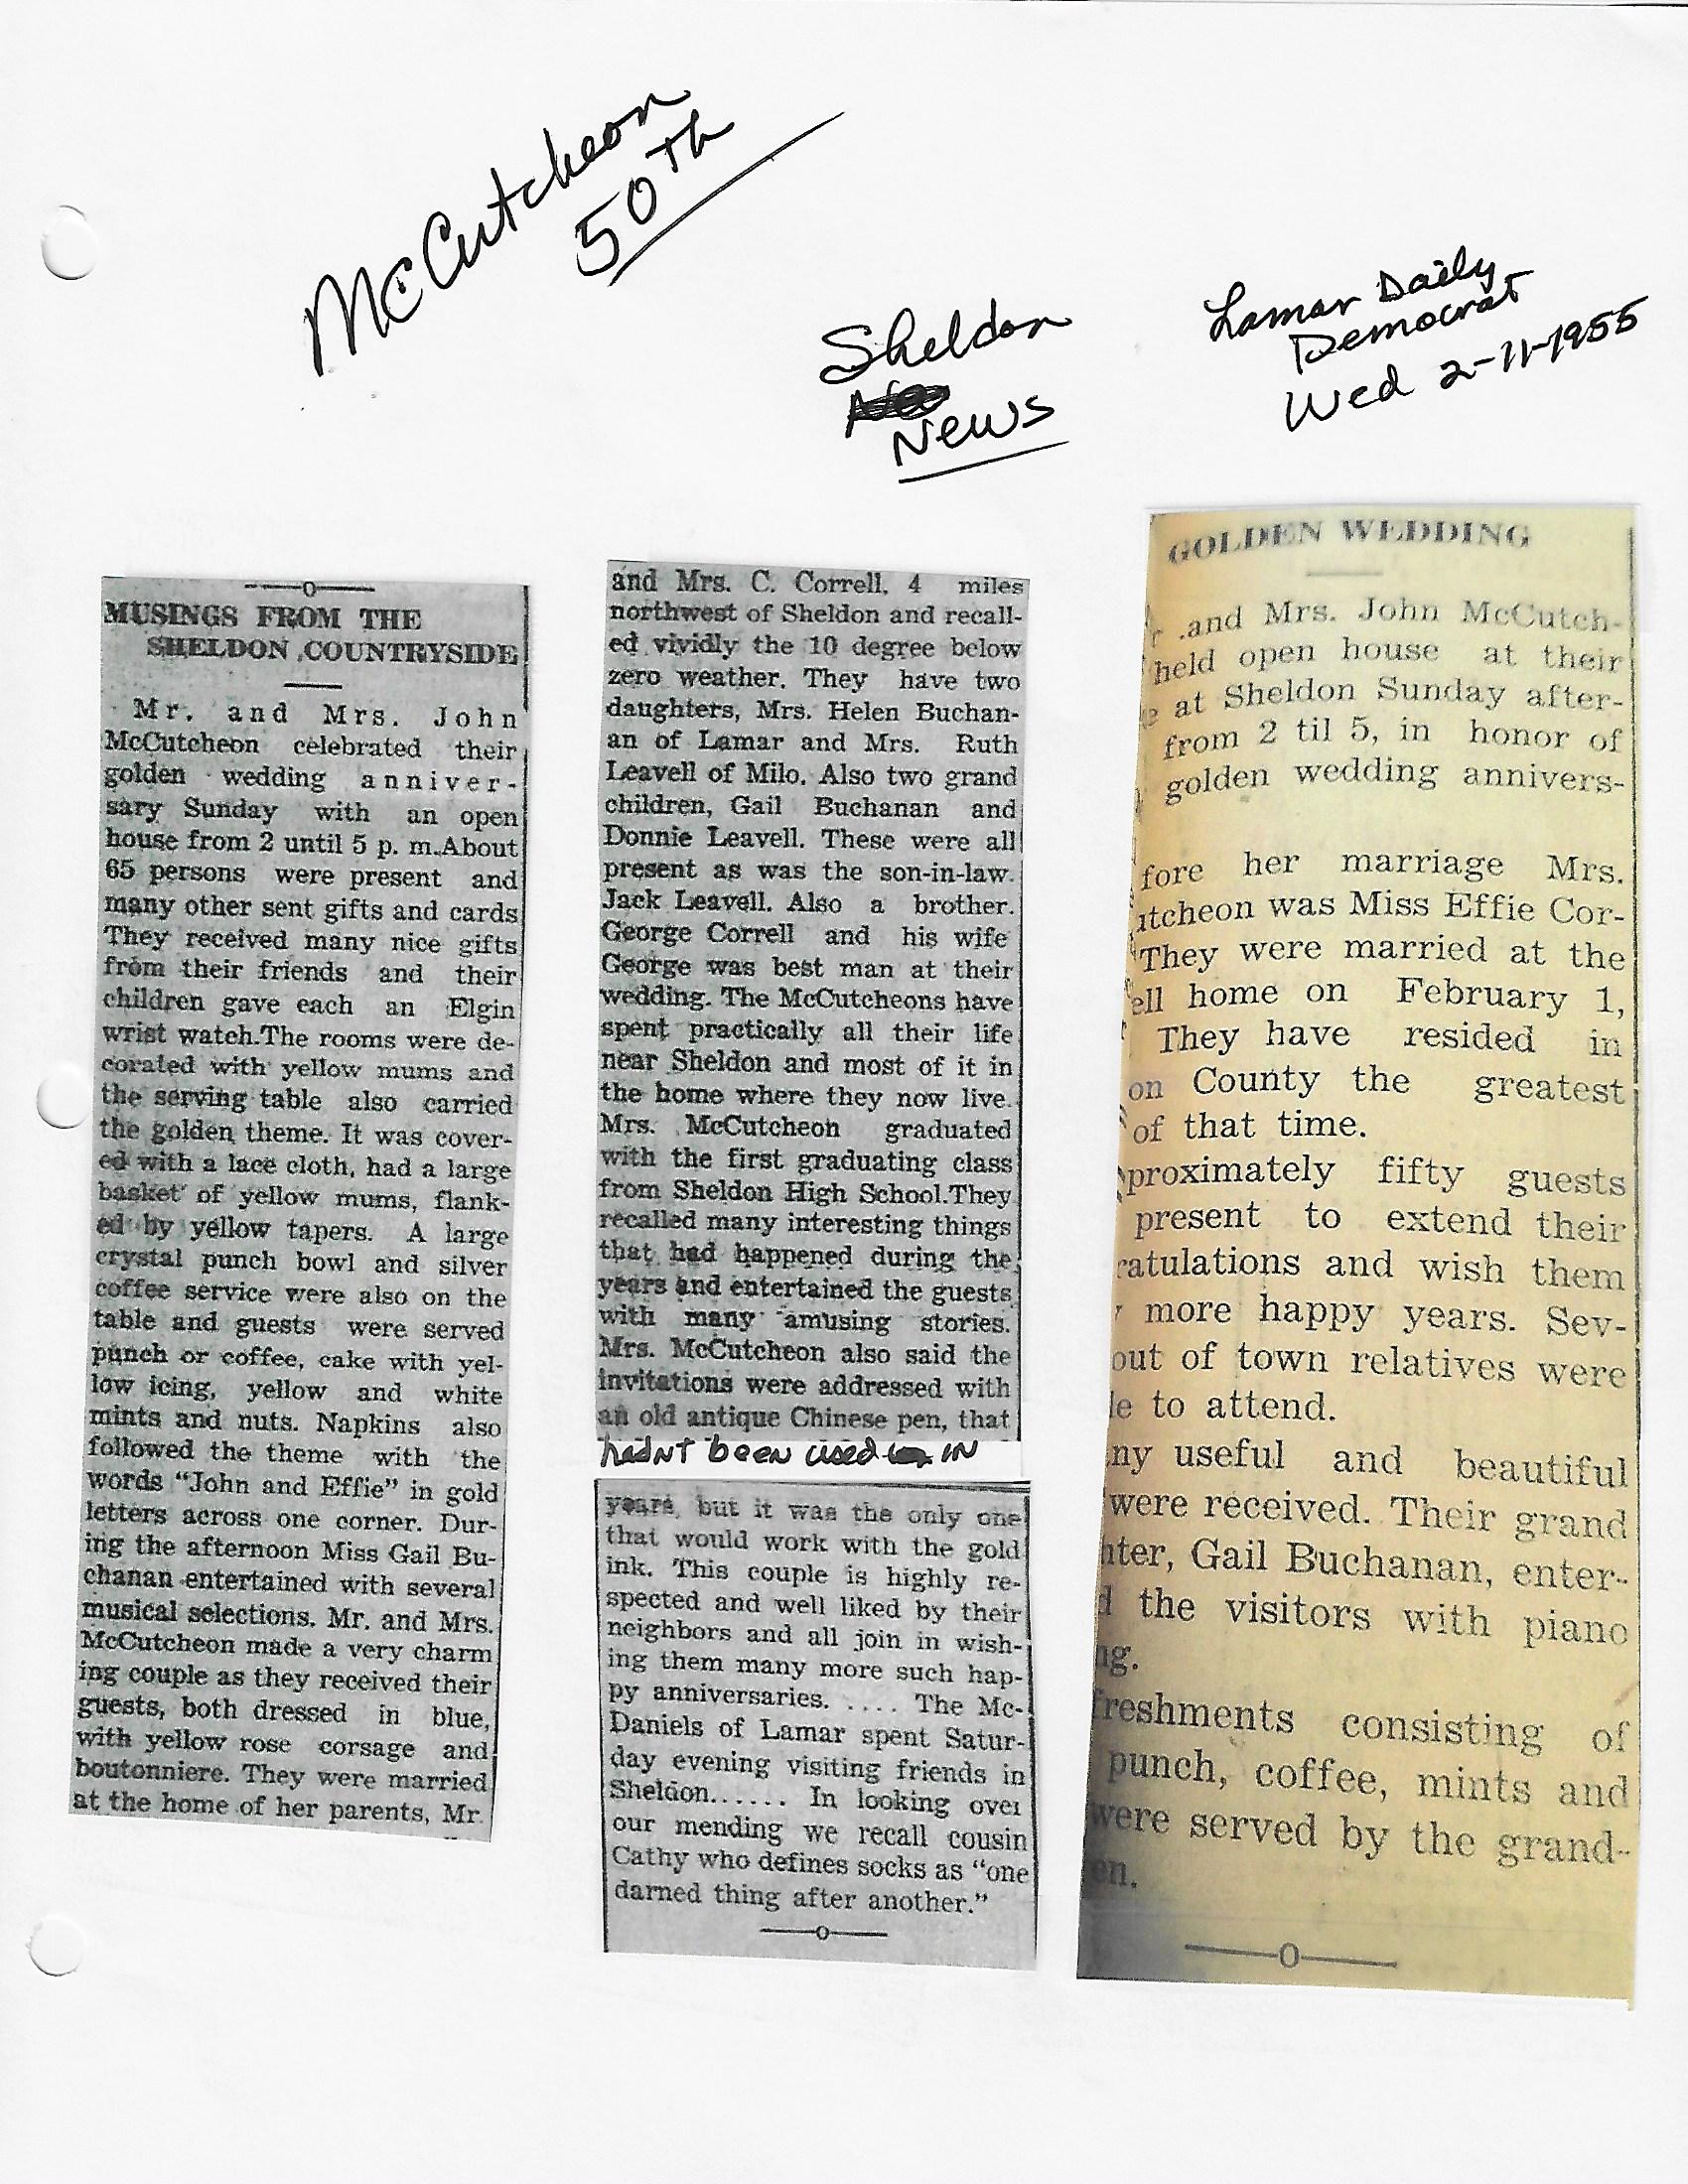 McCutcheon
50th
Sheldon
News
Lamar Daily
Democrat
Wed 2-11-1955
MUSINGS FROM THE
SHELDON COUNTRYSIDE
Mr. and Mrs. John
McCutcheon celebrated their
golden wedding anniver-
sary Sunday with an open
house from 2 until 5 p. m.About
65 persons were present and
many other sent gifts and cards
They received many nice gifts
from their friends and their
children gave each an Elgin
wrist watch.The rooms were de-
corated with yellow mums and
the serving table also carried
the golden theme. It was cover-
ed with a lace cloth, had a large
basket of yellow mums, flank-
ed by yellow tapers. A large
crystal punch bowl and silver
coffee service were also on the
table and guests were served
punch or coffee, cake with yel-
low icing, yellow and white
mints and nuts. Napkins also
followed the theme with the
words "John and Effie" in gold
letters across one corner. Dur-
ing the afternoon Miss Gail Bu-
chanan entertained with several
musical selections. Mr. and Mrs.
McCutcheon made a very charm
ing couple as they received their
guests, both dressed in blue,
with yellow rose corsage and
boutonniere. They were married
at the home of her parents, Mr.
and Mrs. C. Correll, 4 miles
northwest of Sheldon and recall-
ed vividly the 10 degree below
zero weather. They have two
daughters, Mrs. Helen Buchan-
an of Lamar and Mrs. Ruth
Leavell of Milo. Also two grand
children, Gail Buchanan and
Donnie Leavell. These were all
present as was the son-in-law.
Jack Leavell. Also a brother.
George Correll and his wife
George was best man at their
wedding. The McCutcheons have
spent practically all their life
near Sheldon and most of it in
the home where they now live.
Mrs. McCutcheon graduated
with the first graduating class
from Sheldon High School.They
recalled many interesting things
that had happened during the
years and entertained the guests
with many amusing stories.
Mrs. McCutcheon also said the
invitations were addressed with
an old antique Chinese pen, that
hadnt been used in
years, but it was the only one
that would work with the gold
ink. This couple is highly re-
spected and well liked by their
neighbors and all join in wish-
ing them many more such hap-
py anniversaries. .... The Mc-
Daniels of Lamar spent Satur-
day evening visiting friends in
Sheldon...... In looking over
our mending we recall cousin
Cathy who defines socks as "one
darned thing after another."
GOLDEN WEDDING
r .and Mrs. John McCutch-
held open house at their
e at Sheldon Sunday after-
from 2 til 5, in honor of
golden wedding annivers-
fore her marriage Mrs.
utcheon was Miss Effie Cor-
They were married at the
ell home on February 1,
They have resided in
on County the greatest
of that time.
proximately fifty guests
present to extend their
ratulations and wish them
more happy years. Sev-
out of town relatives were
le to attend.
ny useful and beautiful
were received. Their grand
hter, Gail Buchanan, enter-
d the visitors with piano
ng.
freshments consisting of
punch, coffee, mints and
were served by the grand-
en.